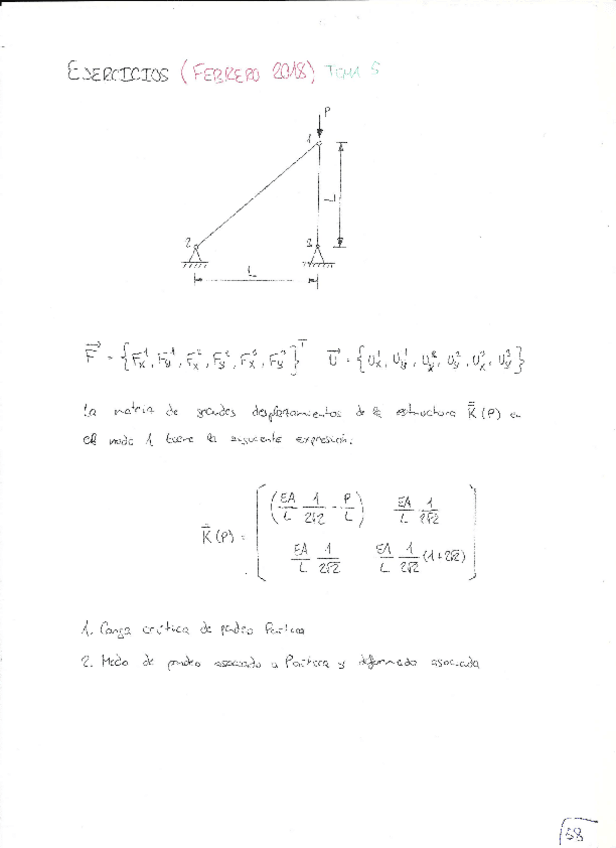 EJERCICIOS (FEBRERO 2018) TEMA 5
P
1
L
2
3
L
F⃗ = {Fx¹, Fy¹, Fx², Fy², Fx³, Fy³}ᵀ U⃗ = {Ux¹, Uy¹, Ux², Uy², Ux³, Uy³}
La matriz de grandes desplazamientos de la estructura K̿(P) en
el nodo 1 tiene la siguiente expresión:
K̿(P) = [ (EA/L 1/2√2 - P/L) EA/L 1/2√2
EA/L 1/2√2 EA/L 1/2√2 (1+2√2) ]
1. Carga crítica de pandeo Pcrítica
2. Modo de pandeo asociado a Pcrítica y deformada asociada
58